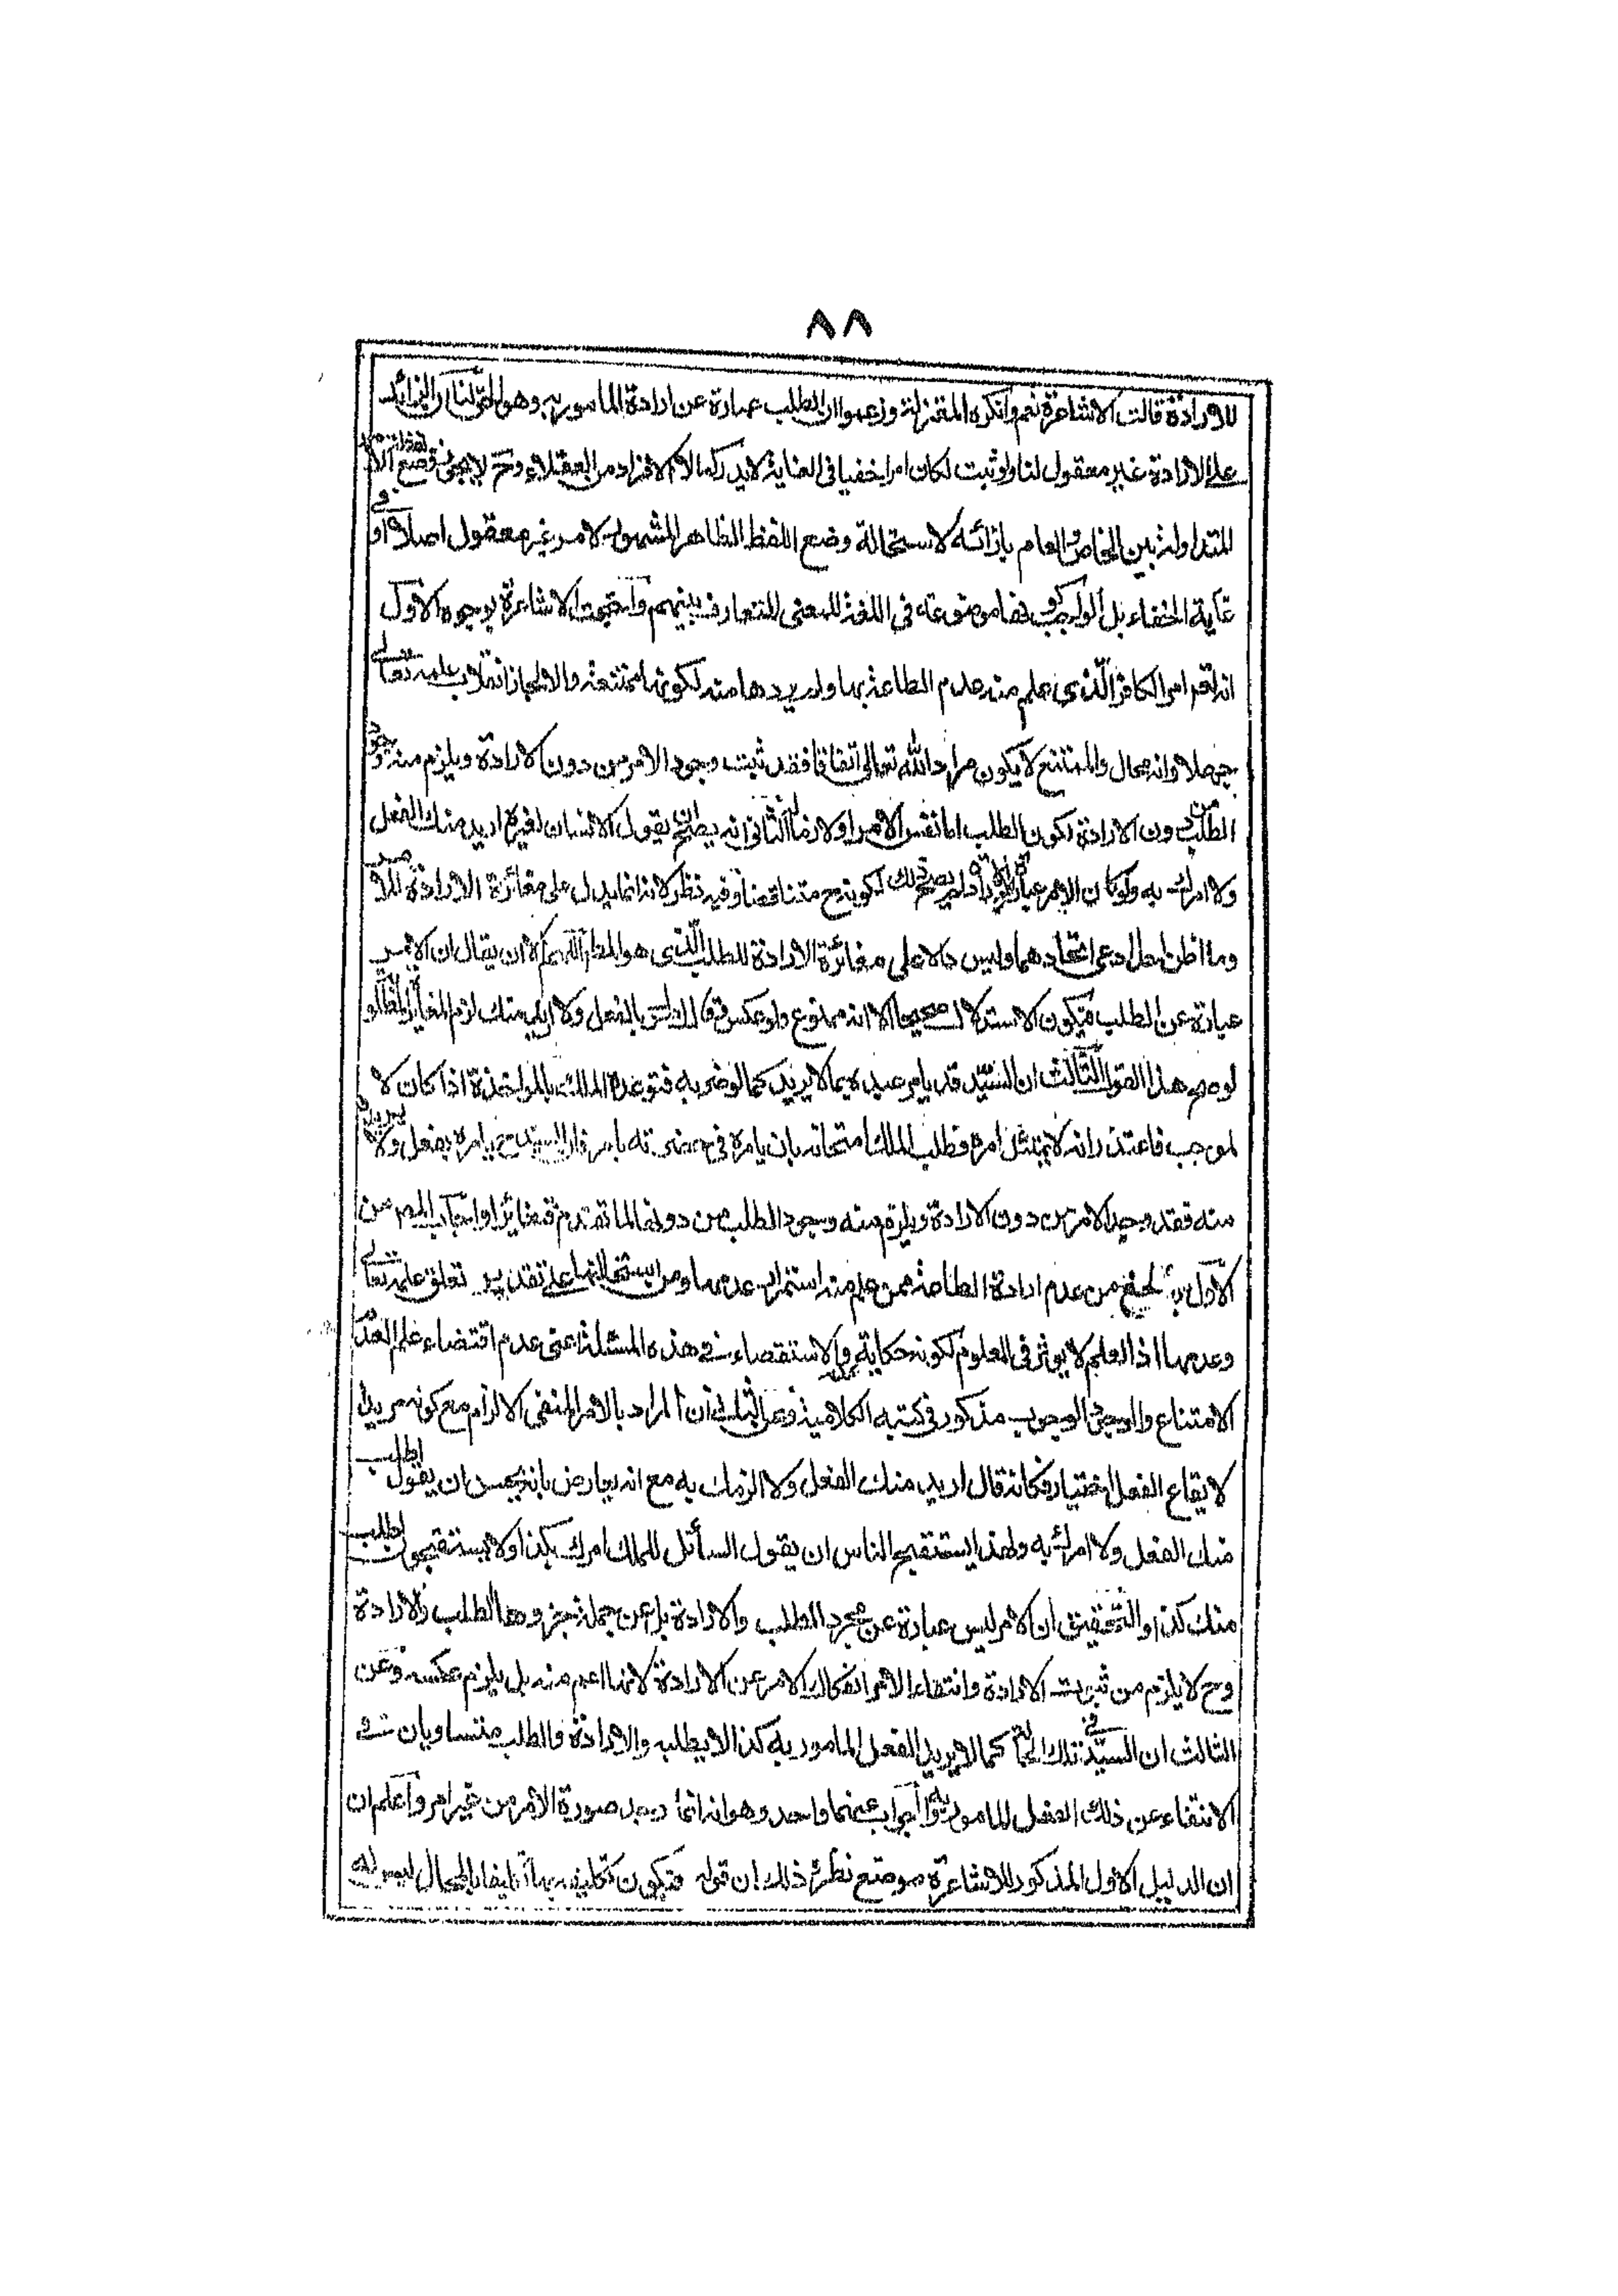 ٨٨
للارادة قالت الاشاعرة نعم وانكره المعتزلة وزعموا ان الطلب عبارة عن ارادة المامور به وهو الحق لنا ان الزائد
على الارادة غير معقول لنا ولو ثبت لكان امرا خفيا فى الغاية لا يدركه الا الافراد من العقلاء وح لا يجوز وضع
المتداولة بين الخاص والعام بازائه لاستحالة وضع اللفظ الظاهر المشهور لامر غير معقول اصلا او فى
غاية الخفاء بل الواجب كونها موضوعة فى اللغة للمعنى المتعارف بينهم واحتجت الاشاعرة بوجوه الاول
انه تعم امر الكافر الذى علم منه عدم الطاعة بها ولم يردها منه لكونها ممتنعة والا لجاز انقلاب علمه تعالى
جهلا وانه محال والممتنع لا يكون مراد الله تعالى اتفاقا فقد ثبت وجود الامر من دون الارادة ويلزم منه وجود
الطلب من دون الارادة لكون الطلب اما نفس الامر او لازما له الثانى انه يصح يقول الانسان لغيره اريد منك الفعل
ولا امرك به ولو كان الامر عبارة عن الارادة لم يصح ذلك لكونه ح متناقضا وفيه نظر لانه انما يدل على مغائرة الارادة للامر
وما اظن احدا ادعى اتحادهما وليس دالا على مغائرة الارادة للطلب الذى هو المط اللهم الا ان يقال ان الامر
عبارة عن الطلب فيكون الاستدلال صحيحا الا انه ممنوع ولو عكس فقال امرك بالفعل ولا اريد منك لزم المغايرة المطلوبة
لو صح هذا القول الثالث ان السيد قد يامر عبده بما لا يريد كما لو ضربه فتوعده الملك بالمواخذة اذا كان لا
لموجب فاعتذر انه لا يمتثل امره فطلب الملك امتحانه بان يامره فى حضرته بامر فان السيد ح يامره بفعل ولا يريده
منه فقد وجد الامر من دون الارادة ويلزم منه وجود الطلب من دونها لما تقدم فتغائرا واجاب المص من
الاول بالمنع من عدم ارادة الطاعة ممن علم منه استمرار عدمها ومن استحالتها على تقدير تعلق علمه تعالى
وعدمها اذ العلم لا يوثر فى المعلوم لكونه حكاية والاستقصاء فى هذه المسئلة اعنى عدم اقتضاء علم العدم
الامتناع والوجود الوجوب مذكور فى كتبه الكلامية وعن الثانى ان المراد بالامر المنفى الالزام مع كونه مريدا
لايقاع الفعل اختيارا فكانه قال اريد منك الفعل ولا الزمك به مع انه يعارض بانه يحسن ان يقول اطلب
منك الفعل ولا امرك به ولهذا يستقبح الناس ان يقول السائل للملك امرك بكذا ولا يستقبحون اطلب
منك كذا والتحقيق ان الامر ليس عبارة عن مجرد الطلب والارادة بل عن جملة جزوها الطلب والارادة
وح لا يلزم من ثبوت الارادة وانتفاء الامر انفكاك الامر عن الارادة لانها اعم منه بل يلزم عكسه وعن
الثالث ان السيد فى تلك الحالة كما لا يريد الفعل المامور به كذا لا يطلبه والارادة والطلب متساويان فى
الانتفاء عن ذلك الفعل المامور به والجواب عنهما واحد وهو انه انما يوجد صورة الامر من غير امر واعلم ان
ان الدليل الاول المذكور للاشاعرة موضع نظر ذلك ان قوله فيكون تكليفه بها تكليفا بالمحال ليس له